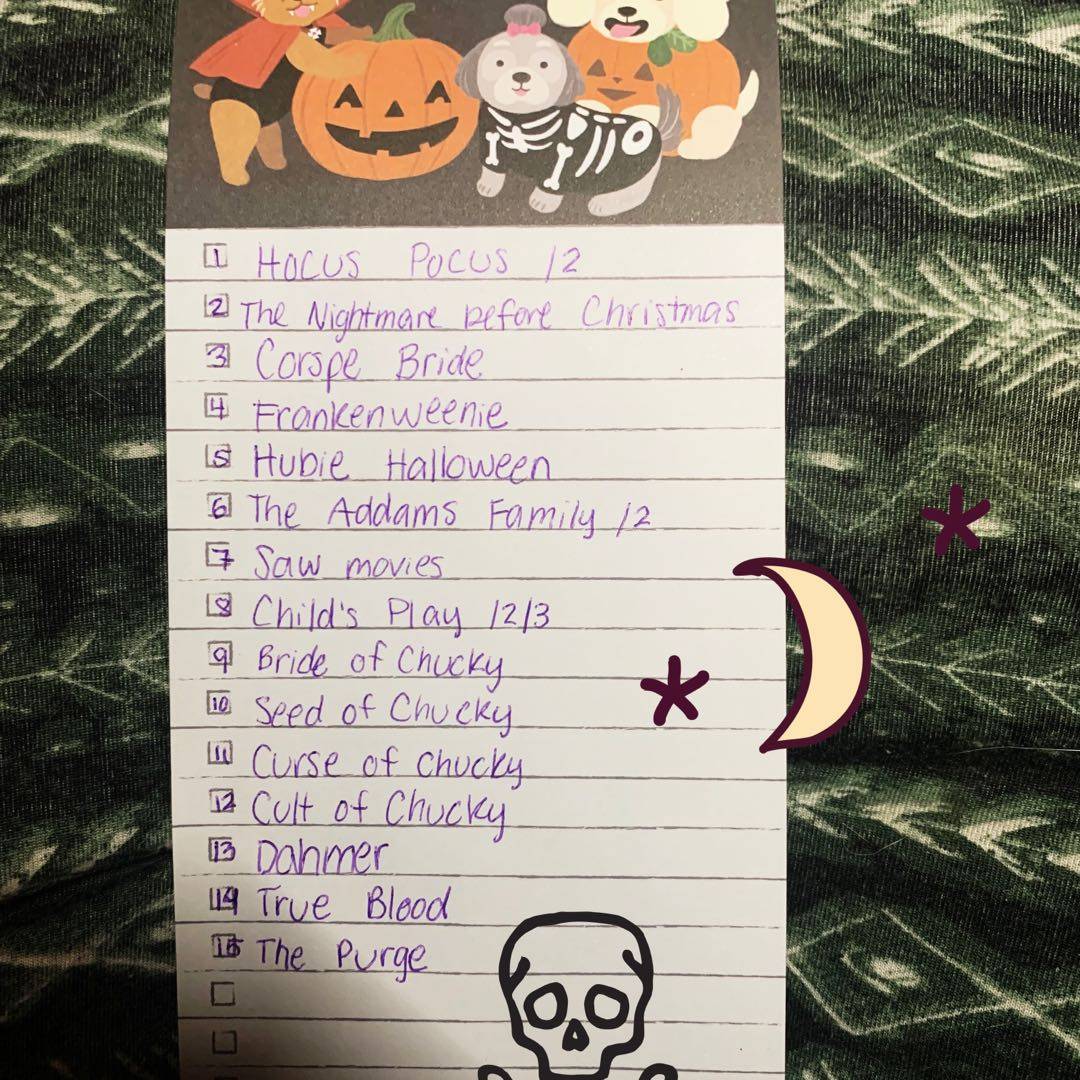 1 Hocus Pocus /2
2 The Nightmare before Christmas
3 Corspe Bride
4 Frankenweenie
5 Hubie Halloween
6 The Addams Family /2
7 Saw movies
8 Child's Play /2/3
9 Bride of Chucky
10 Seed of Chucky
11 Curse of Chucky
12 Cult of Chucky
13 Dahmer
14 True Blood
15 The Purge